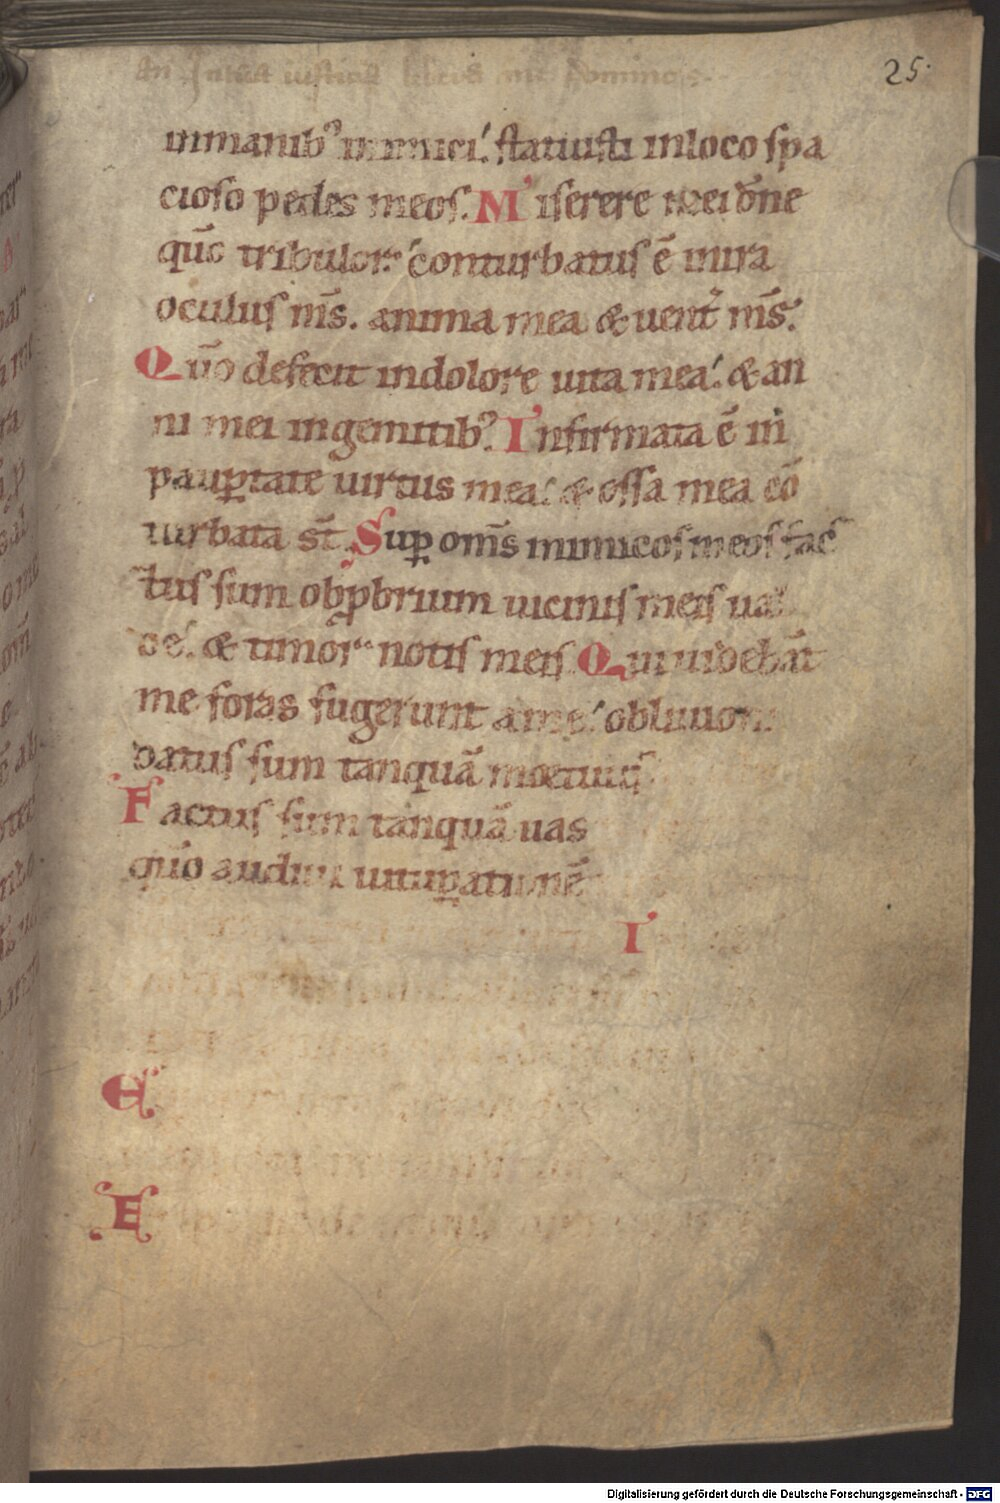 25
inmanib᾽ inimici. statuisti inloco spa
cioso pedes meos. Miserere mei dñe
qm̄ tribulor. conturbatus ē inira
oculus m̄s. anima mea & uent̄ m̄s.
Qm̄o defecit indolore uita mea. & an
ni mei ingemitib᾽. Infirmata ē in
paup̱tate uirtus mea. & ossa mea cō
turbata st̄. Sup̱ om̄s inimicos meos fac
tus sum obp̱brium uicinis meis ual
de. & timor notis meis. Qui uidebāt
me foras fugerunt a me. obliuioni
datus sum tanquā
Factus sum tanquā uas
qm̄o audiui uitup̱ationē
I
E
E
Digitalisierung gefördert durch die Deutsche Forschungsgemeinschaft - DFG